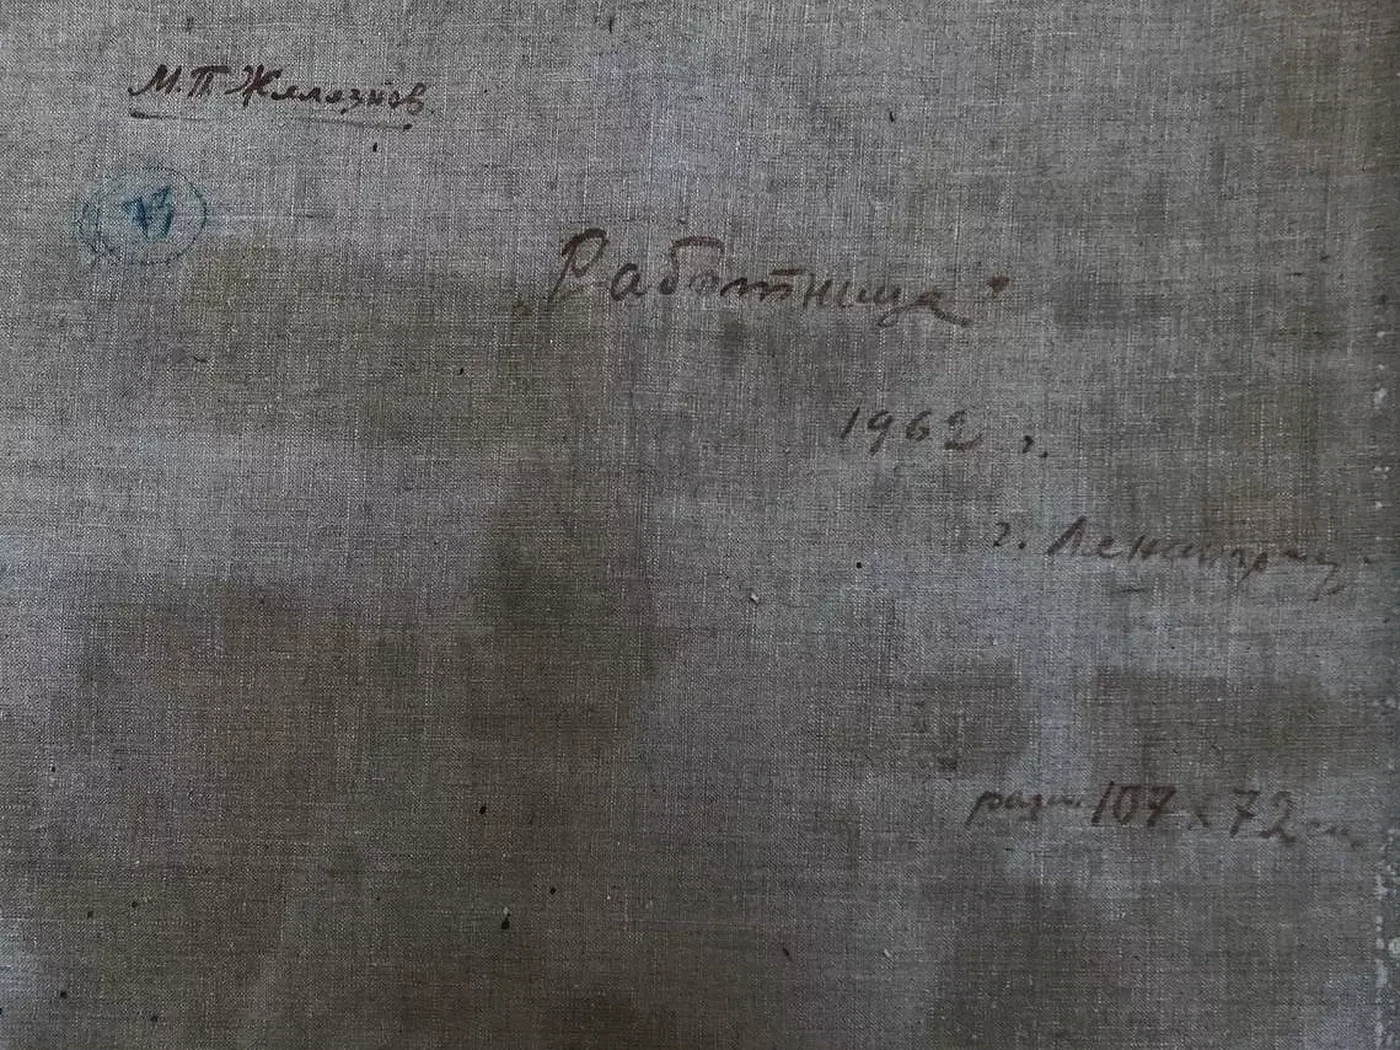 М.П. Железнов
73
„Работница"
1962 г.
г. Ленинград
разм 107 x 72 см